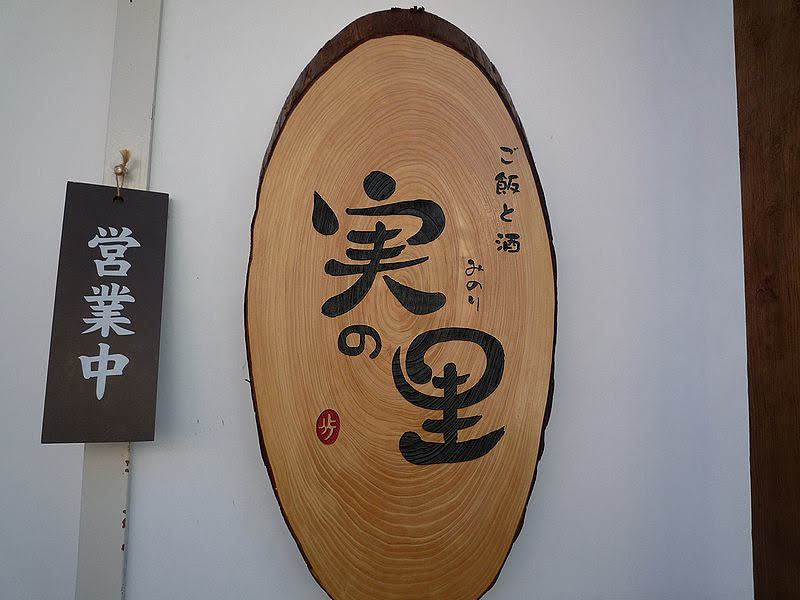 営業中
ご飯と酒
みのり
実の里
歩